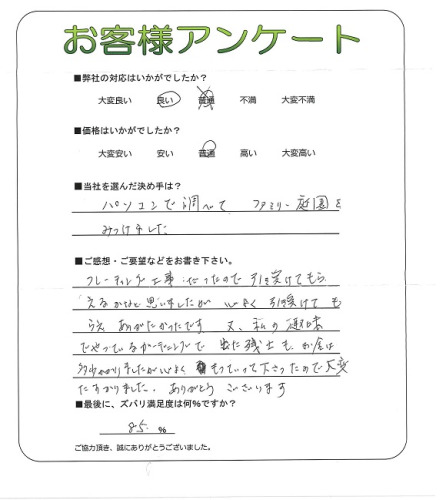 お客様アンケート
■弊社の対応はいかがでしたか？
大変良い 良い 普通 不満 大変不満
■価格はいかがでしたか？
大変安い 安い 普通 高い 大変高い
■当社を選んだ決め手は？
パソコンで調べて ファミリー庭園を
みつけました
■ご感想・ご要望などをお書き下さい。
フレーチング工事だったので 引き受けてもら
えるかなと思いましたが 心よく引受けても
らえ ありがたかったです 又、私の趣味
でやっているガーデニングで 出た残土も、お金は
かかりましたが心よく もっていって下さったので大変
たすかりました。ありがとうございます
■最後に、ズバリ満足度は何%ですか？
85. %
ご協力頂き、誠にありがとうございました。